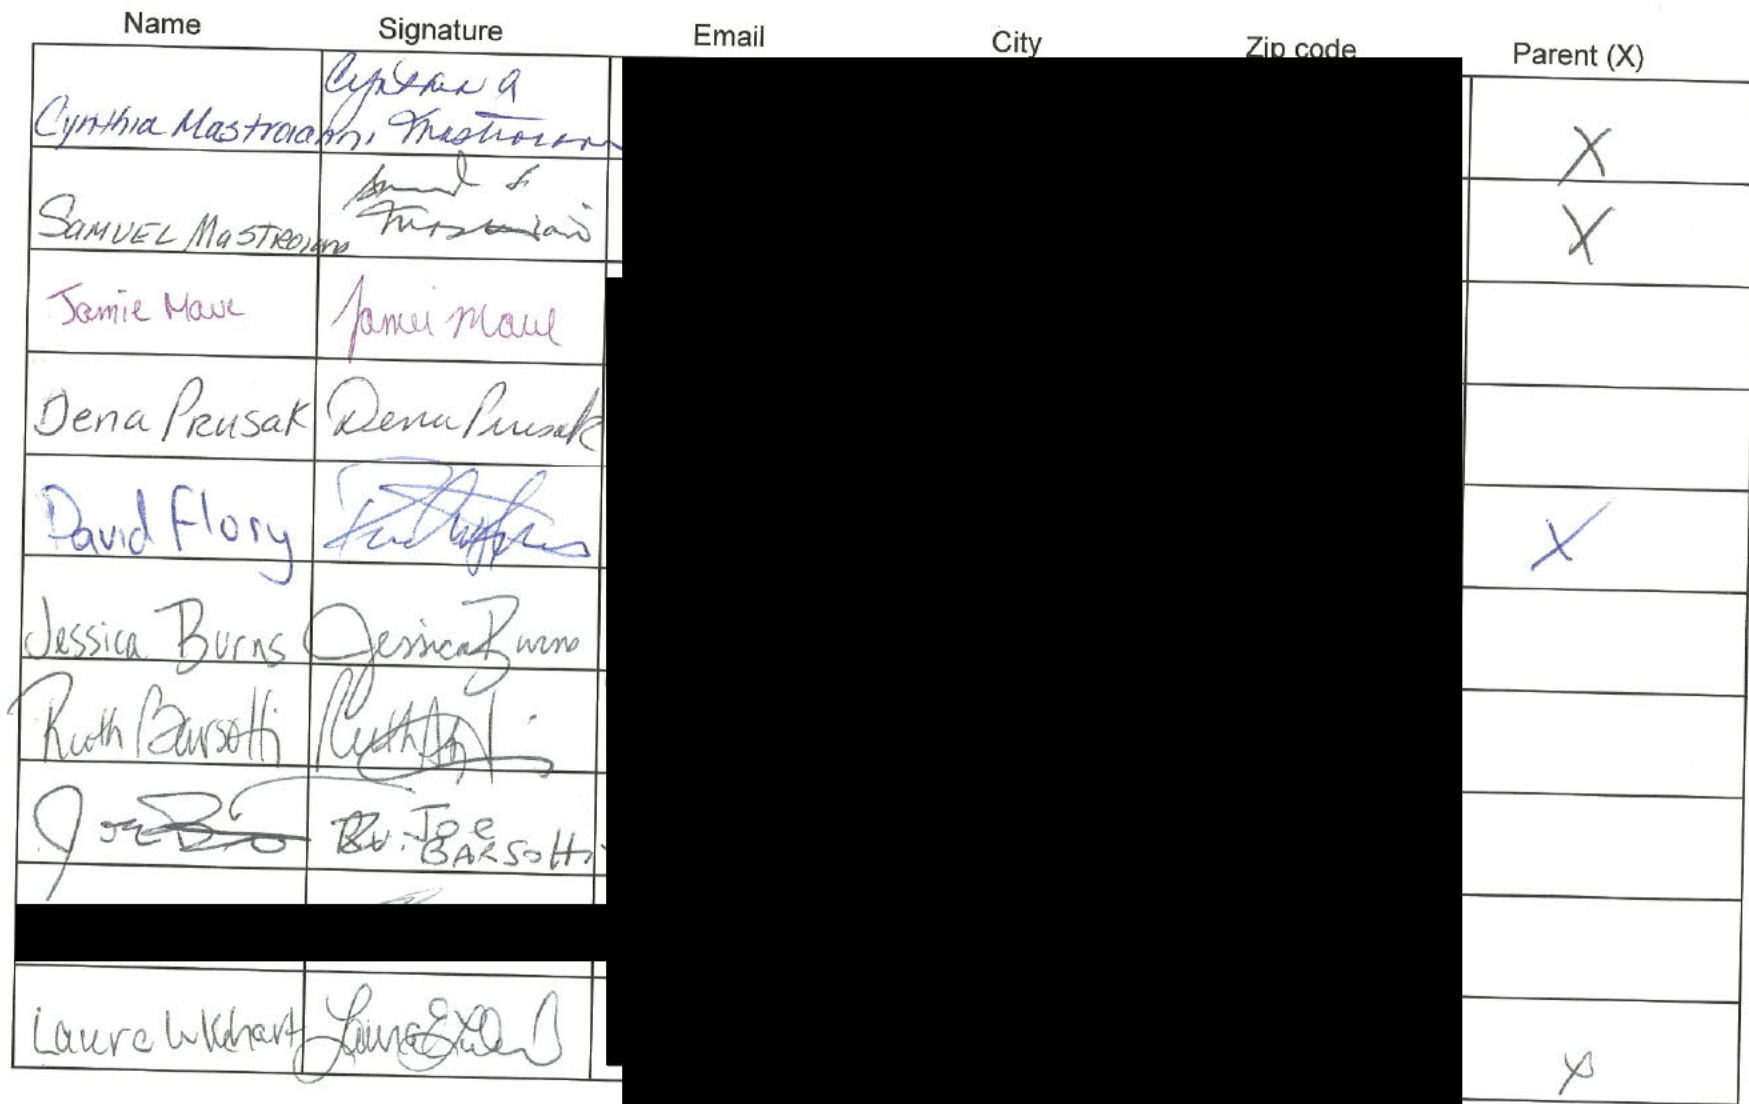 Name Signature Email City Zip code Parent (X)
Cynthia Mastroianni Cynthia A Mastroianni X
SAMUEL MASTROIANNI X
Jamie Maue Jamie Maue
Dena Prusak Dena Prusak
David Flory X
Jessica Burns Jessica Burns
Ruth Barsotti Ruth
Joe Rev. Joe BARSOTTI
Laura X